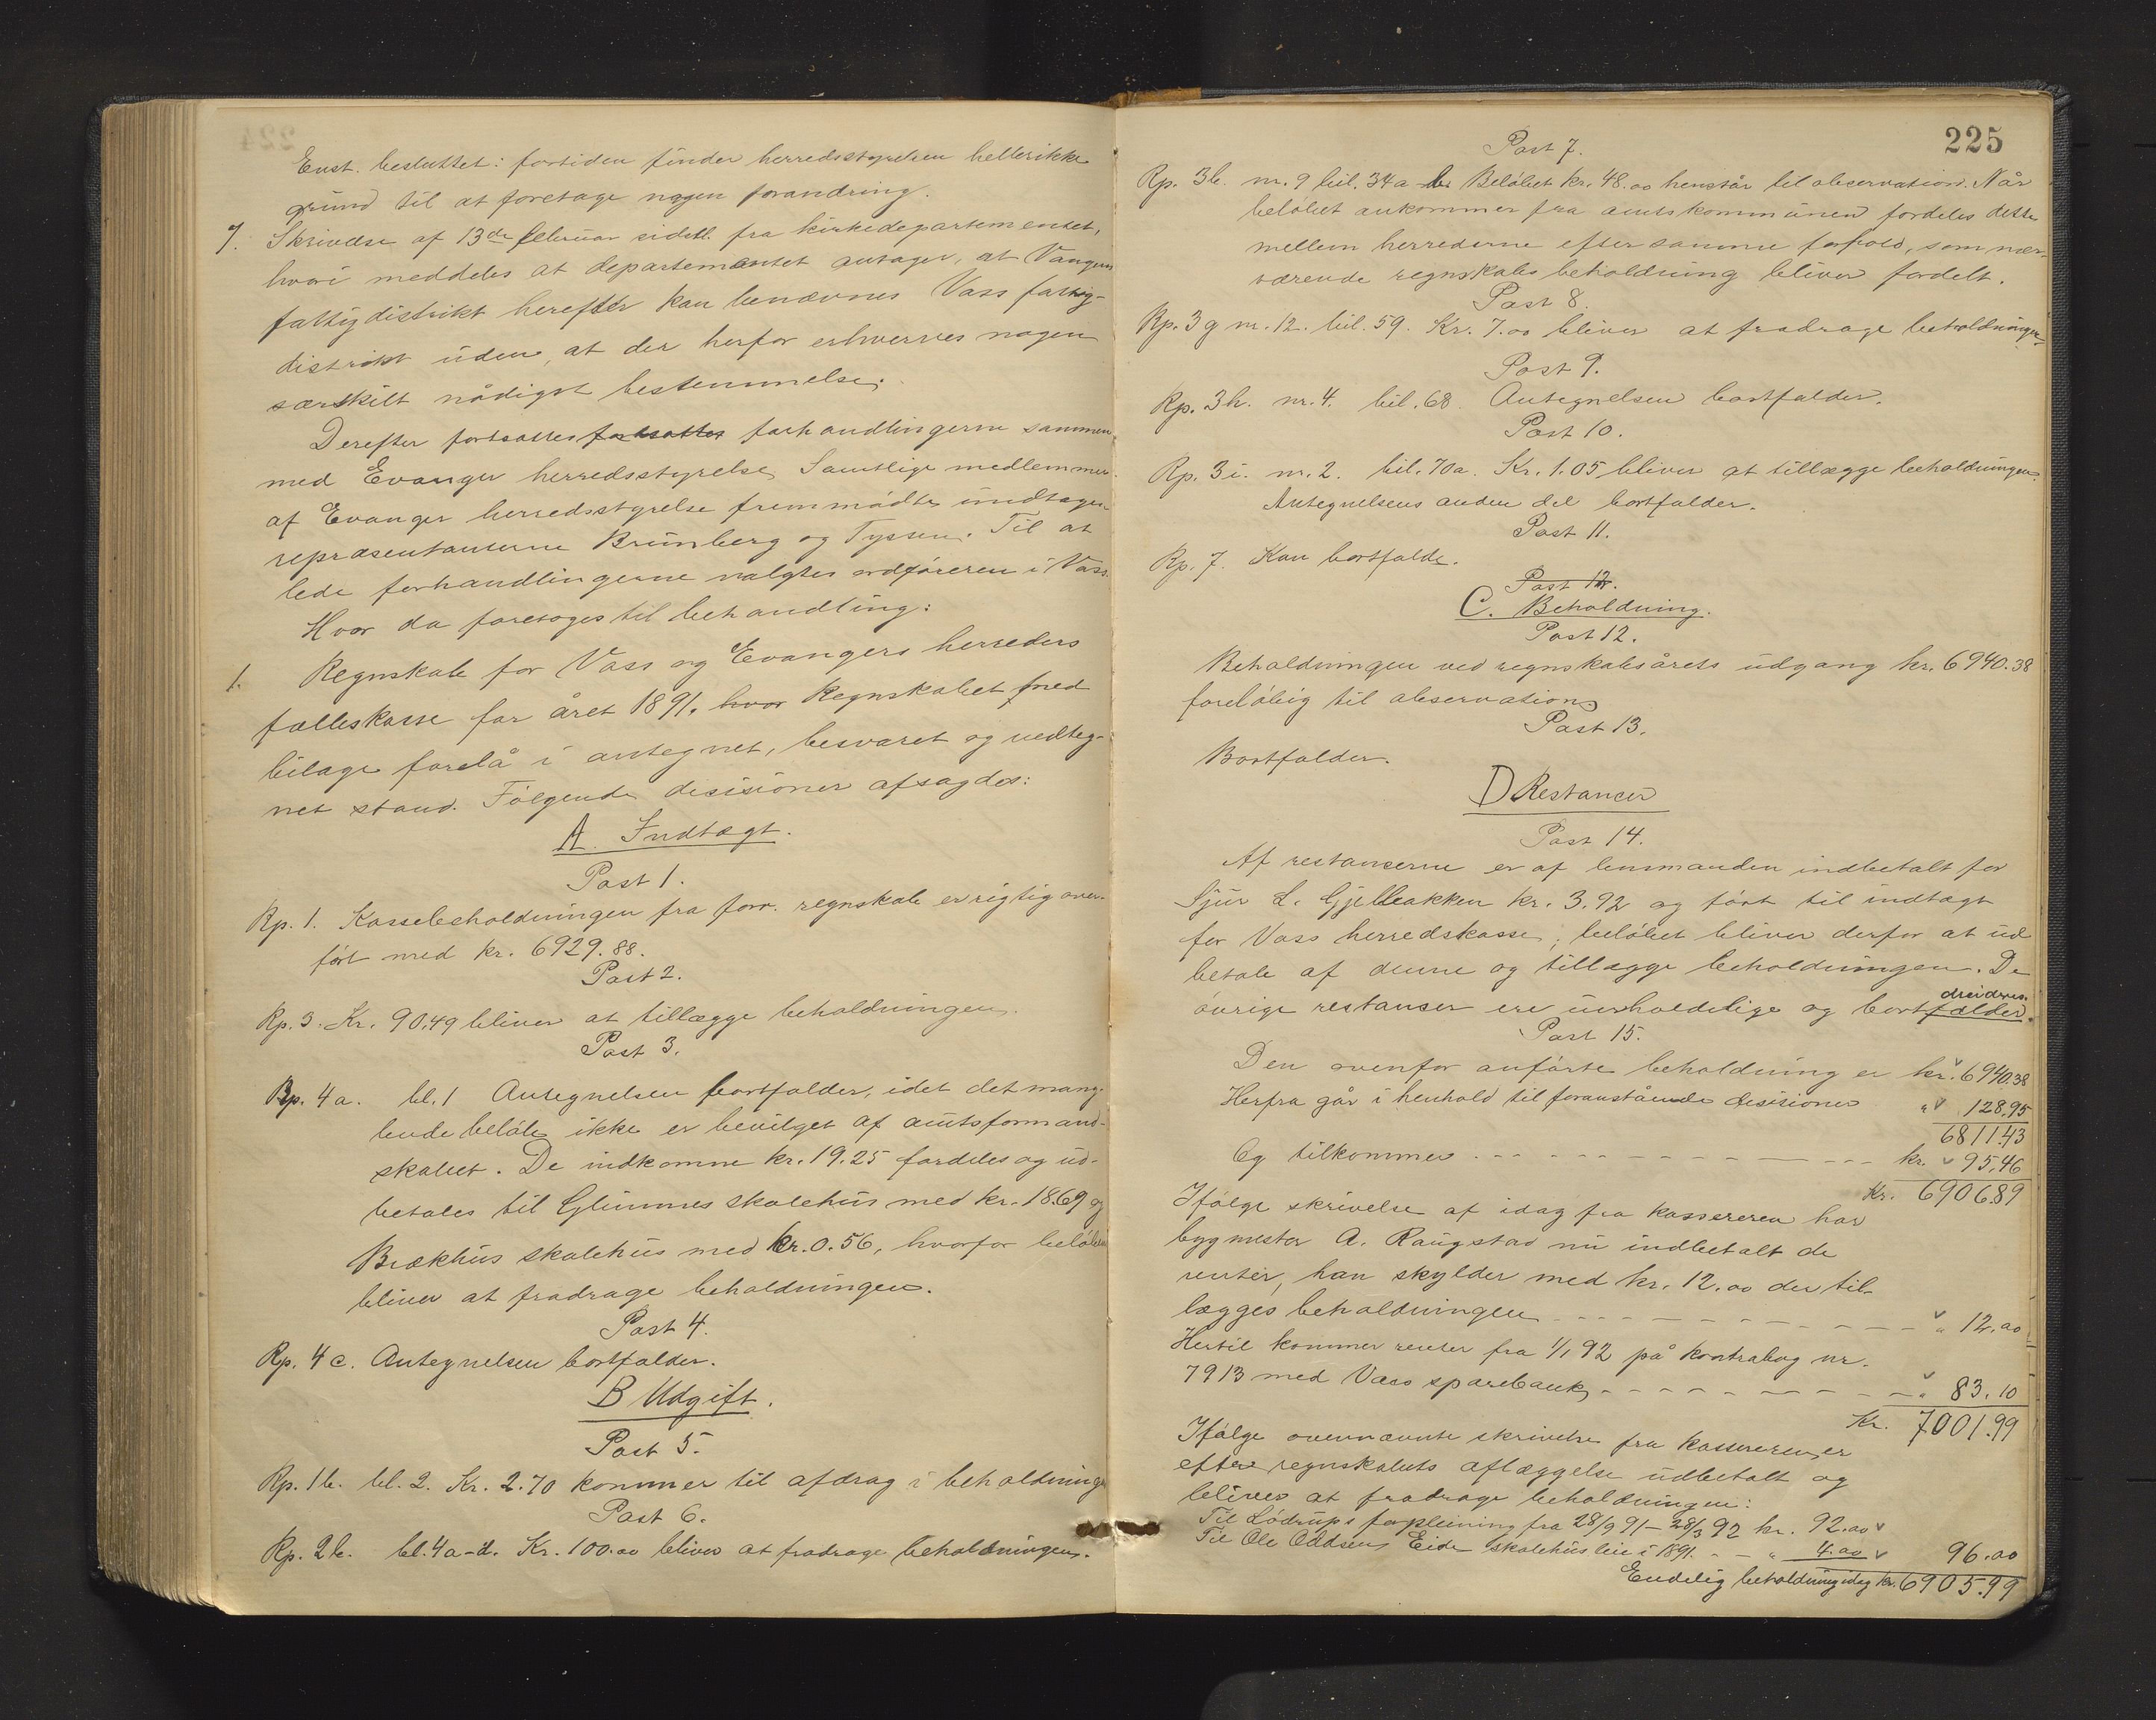 Enst. besluttet: fortiden finder herredsstyrelsen hellerikke
grund til at foretage nogen forandring.
7. Skrivelse af 13de februar sidstl. fra kirkedepartementet,
hvori meddeles at departementet antager, at Vangens
fattigdistrikt herefter kan benævnes Vass fattig-
distrikt uden, at der herfor erhverves nogen
særskilt nådigst bestemmelse.
Derefter fortsattes fortsattes forhandlingerne sammen
med Evanger herredsstyrelse. Samtlige medlemmer
af Evanger herredsstyrelse fremmødte undtagen
repræsentanterne Brunberg og Tyssen. Til at
lede forhandlingerne valgtes ordføreren i Vass.
Hvor da foretoges til behandling:
1. Regnskab for Vass og Evangers herreders
fælleskasse for året 1891. hvor Regnskabet med
bilage forelå i antegnet, besvaret og vedteg-
net stand. Følgende desisioner afsagdes:
A. Indtægt.
Post 1.
Rp. 1. Kassebeholdningen fra forr. regnskab er rigtig over-
ført med kr. 6929.88.
Post 2.
Rp. 3. Kr. 90,49 bliver at tillægge beholdningen.
Post 3.
Rp. 4a. bl. 1 Antegnelsen bortfalder, idet det mang-
lende beløb ikke er bevilget af amtsformand-
skabet. De indkomne kr. 19.25 fordeles og ud-
betales til Glimmes skolehus med kr. 18.69 og
Brækhus skolehus med kr. 0.56, hvorfor beløbet
bliver at fradrage beholdningen.
Post 4.
Rp. 4c. Antegnelsen bortfalder.
B Udgift.
Post 5.
Rp. 1b. bl. 2. Kr. 2.70 kommer til afdrag i beholdningen
Post 6.
Rp. 2b. bl. 4a-d. Kr. 100.00 bliver at fradrage beholdningen.
225
Post 7.
Rp. 3b. nr. 9 bil. 34a-b. Beløbet kr. 48.00 henstår til observation. Når
beløbet ankommer fra amtskommunen fordeles dette
mellem herrederne efter samme forhold, som nær-
værende regnskabs beholdning bliver fordelt.
Post 8.
Rp. 3g nr. 12. bil. 59. Kr. 7.00 bliver at fradrage beholdningen.
Post 9.
Rp. 3h. nr. 4. bil. 68. Antegnelsen bortfalder.
Post 10.
Rp. 3i. nr. 2. bil. 70a. Kr. 1.05 bliver at tillægge beholdningen.
Antegnelsens anden del bortfalder.
Post 11.
Rp. 7. Kan bortfalde.
Post 12.
C. Beholdning.
Post 12.
Beholdningen ved regnskabsårets udgang kr. 6940.38
foreløbig til observation.
Post 13.
Bortfalder.
D Restancer
Post 14.
Af restancerne er af lensmanden indbetalt for
Sjur L. Gjelleakken kr. 3.92 og ført til indtægt
for Vass herredskasse; beløbet bliver derfor at ud
betale af denne og tillægge beholdningen. De
desideres.
øvrige restanser ere uerholdelige og bortfalder.
Post 15.
Den ovenfor anførte beholdning er kr. 6940.38
Herfra går i henhold til foranstående desisioner " 128,95
6811.43
Og tilkommer - - - kr. 95,46
Kr. 6906.89
Ifølge skrivelse af idag fra kassereren har
bygmester A. Raugstad nu indbetalt de
renter, han skylder med kr. 12.00 der til-
lægges beholdningen - - - " 12.00
Hertil kommer renter fra 1/1 92 på kontrabog nr.
7913 med Vass sparebank - - - " 83.10
Kr. 7001.99
Ifølge ovennævnte skrivelse fra kassereren, er
efter regnskabets aflæggelse udbetalt og
bliver at fradrage beholdningen:
Til Lødrups forpleining fra 28/9 91 - 28/3 92 kr. 92.00
Til Ole Oddsen Eide skolehusleie i 1891. - - " 4.00 96.00
Endelig beholdning idag kr. 6905.99